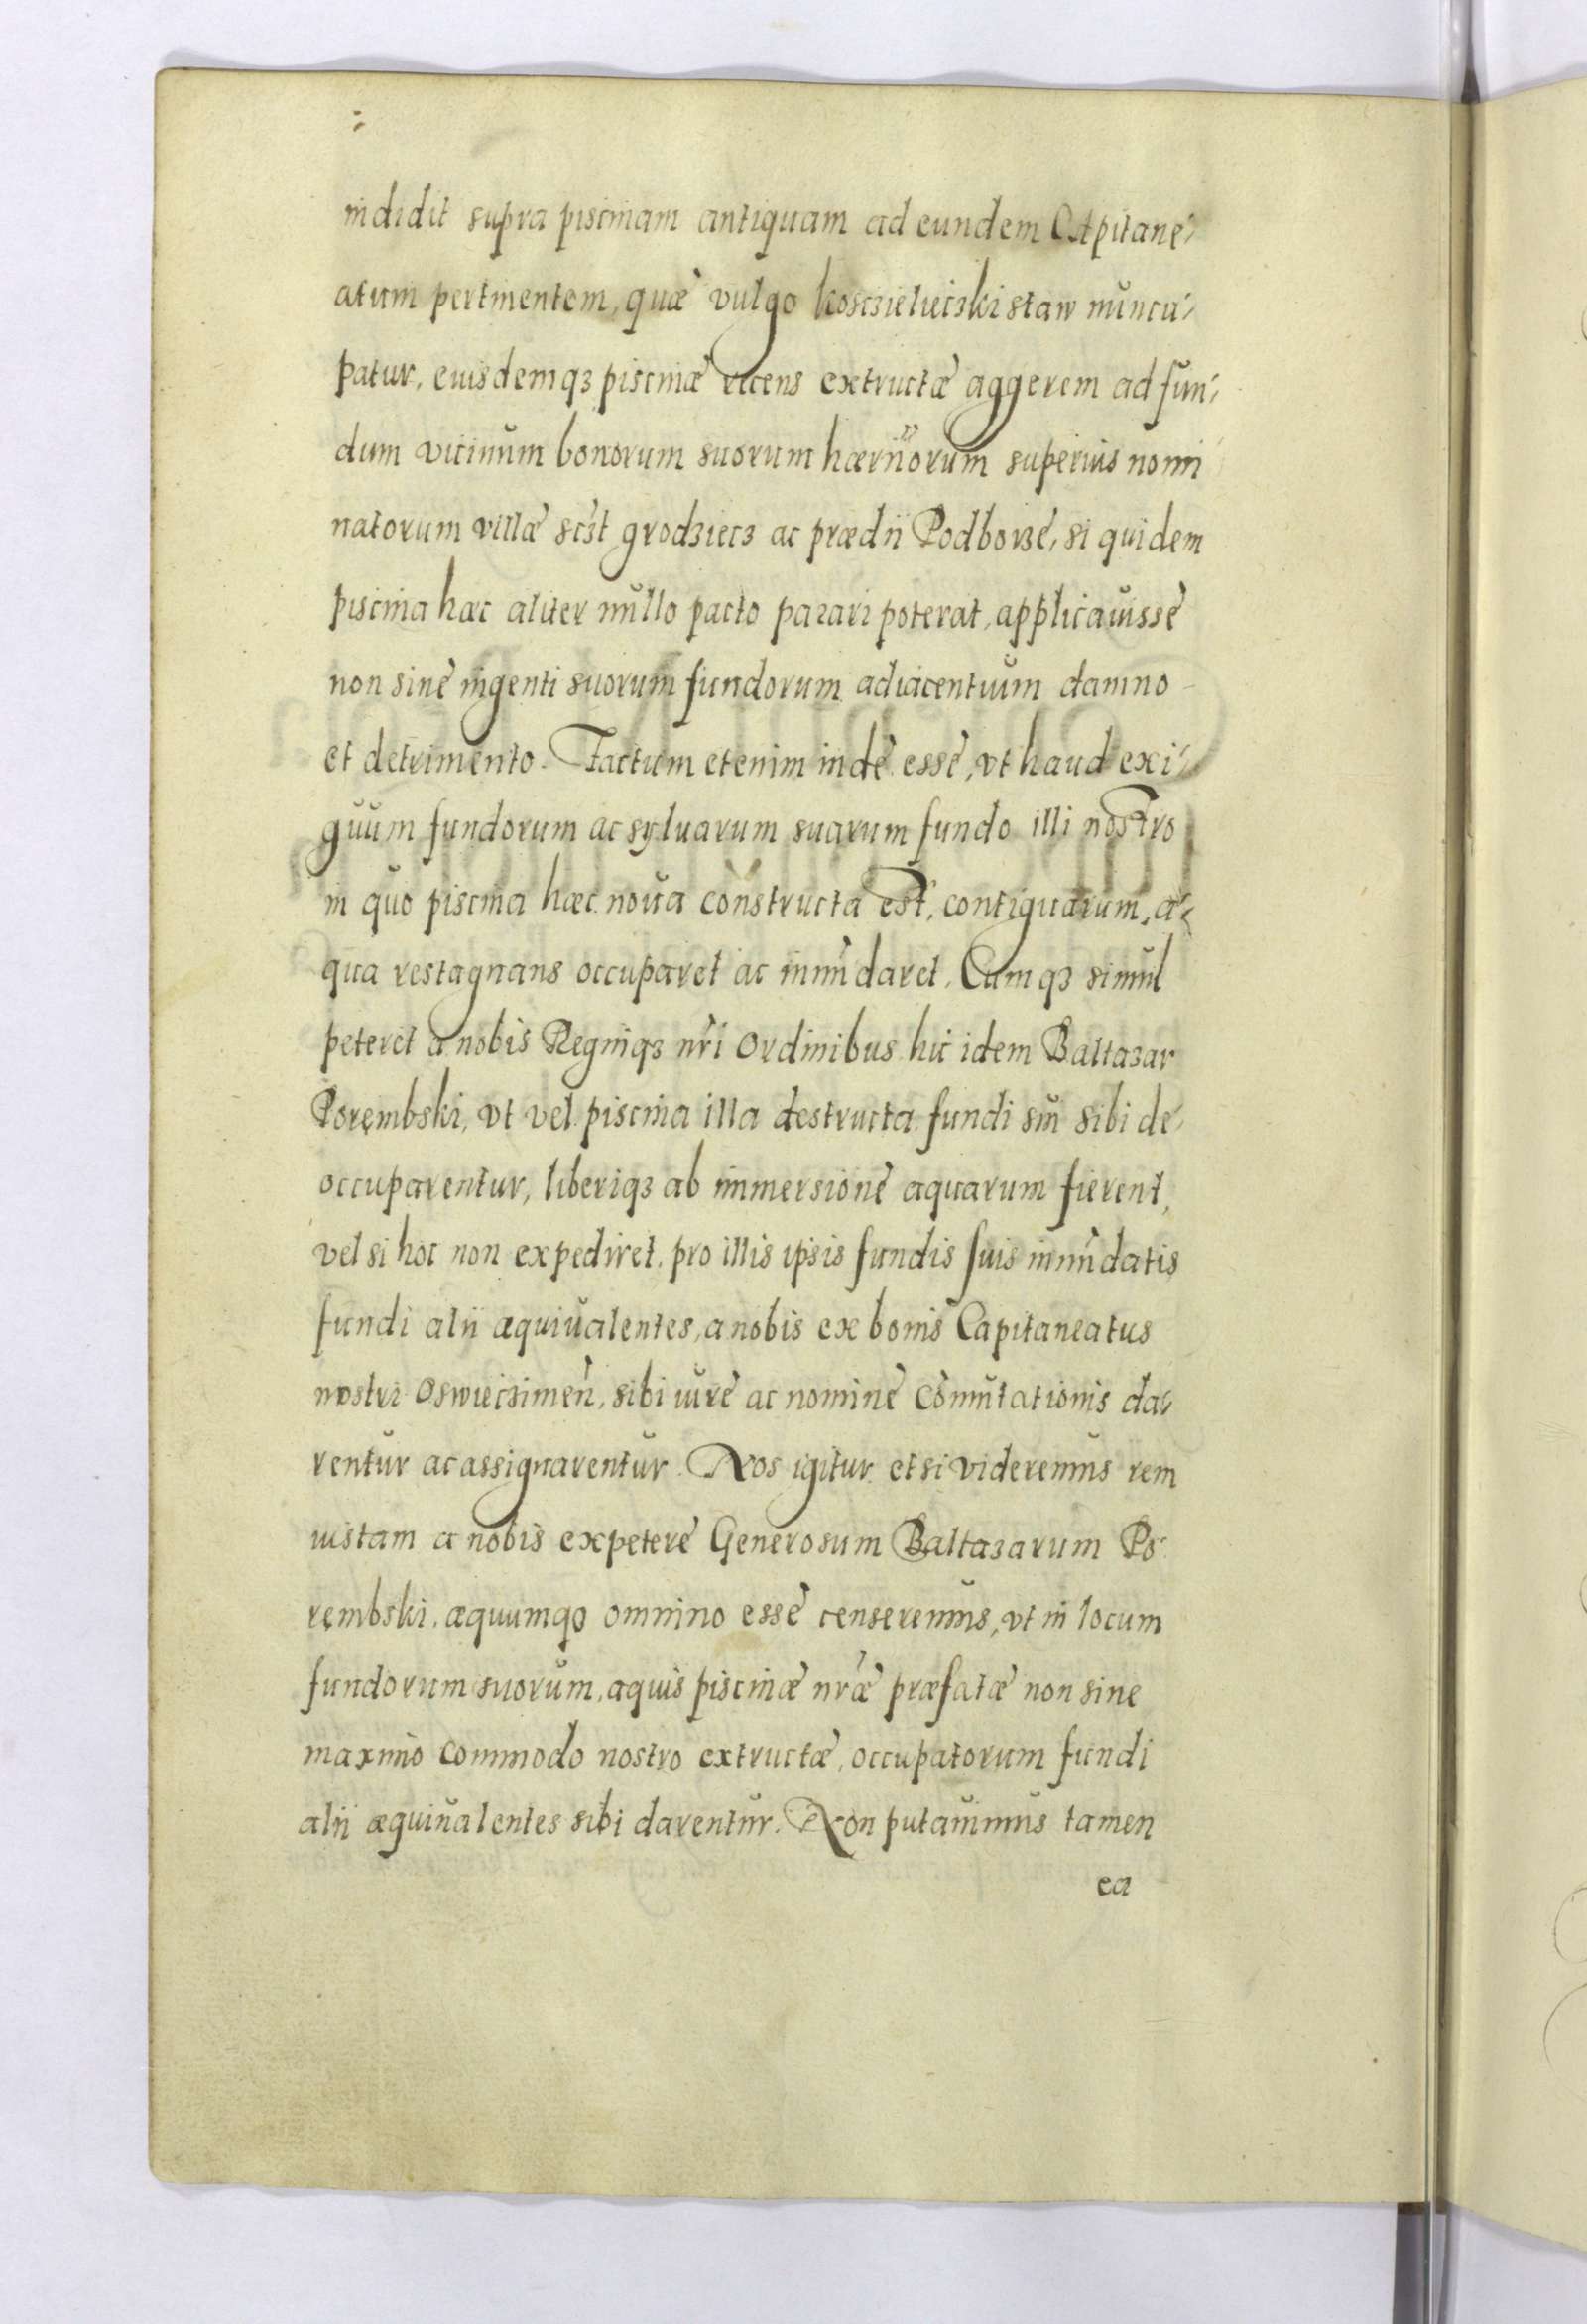 indidit supra piscinam antiquam ad eundem CApitane-
atum pertinentem, quæ vulgo kosczielieczki staw nuncu-
patur, eiusdemq3 piscinæ recens extructæ aggerem ad fun-
dum vicinum bonorum suorum hærñorum superius nomi
natorum villæ sczt grodziecz ac prædii Podborze, si quidem
piscina hæc aliter nullo pacto parari poterat, applicauisse
non sine ingenti suorum fundorum adiacentium damno
et detrimento. Factum etenim inde esse, vt haud exi-
guum fundorum ac syluarum suarum fundo illi nostro
in quo piscina hæc noua constructa est, contiguarum, a-
qua restagnans occuparet ac inundaret. Cumq3 simul
peteret a nobis Regniq3 nři Ordinibus hic idem Baltazar
Porembski, vt vel piscina illa destructa fundi sui sibi de-
occuparentur, liberiq3 ab immersione aquarum fierent,
vel si hoc non expediret, pro illis ipsis fundis suis inundatis
fundi alii æquiualentes, a nobis ex bonis Capitaneatus
nostri Oswieczimeñ, sibi iure ac nomine comutationis da-
rentur ac assignarentur. Nos igitur etsi videremus rem
iustam a nobis expetere Generosum Baltazarum Po-
rembski, æquumq3 omnino esse censeremus, vt in locum
fundorum suorum, aquis piscinæ nřæ præfatæ non sine
maximo commodo nostro extructæ, occupatorum fundi
alii æquiualentes sibi darentur. Non putauimus tamen
ea